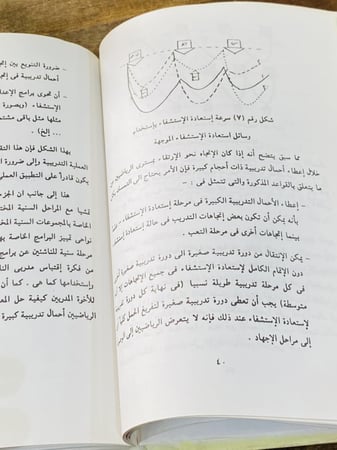 شكل رقم (٧) سرعة إستعادة الإستشفاء بإستخدام
وسائل إستعادة الإستشفاء الموجهة
مما سبق يتضح أنه إذا كان الإتجاه نحو الإرتقاء بمستوى الرياضيين من
خلال إعطاء أحمال تدريبية ذات أحجام كبيرة فإن الأمر يحتاج الى
ما يتعلق بالقواعد المذكورة والتى تتمثل فى :
- إعطاء الأحمال التدريبية الكبيرة فى مرحلة إستعادة الإستشفاء
بأنه يمكن أن تكون بعض إتجاهات التدريب فى حالة إستعادة
بينما إتجاهات أخرى فى مرحلة التعب .
- يمكن الإنتقال من دورة تدريبية صغيرة الى دورة تدريبية صغيرة
دون الإتمام الكامل لإستعادة الإستشفاء فى جميع الإتجاهات
فى كل مرحلة تدريبية طويلة نسبيا (فى نهاية كل دورة
متوسطة) يجب أن تعطى دورة تدريبية صغيرة لتفريغ الحمل
لإستعادة الإستشفاء عند ذلك فإنه لا يتعرض الرياضيين
إلى مراحل الإجهاد .
٤٠
- ضرورة التنويع بين
أحمال تدريبية فى
- أن تحوى برامج
الإستشفاء (وبصورة
مثلها مثل باقى
... إلخ) .
بهذا الشكل فإن هذا
العملية التدريبية وإلى ضرورة
يكون قادراً على التطبيق العملى
هذا إلى جانب ان
تمشيا مع المراحل السنية
الخاصة بالمجموعات السنية
نواحى تميز البرامج الخاصة
مرحلة سنية للناشئين عن برامج
من فكرة إقتباس مدربى
وإستخدامها كما هى . كما أن
للأخرة المدربين كيفية حل
الرياضيين أحمال تدريبية كبيرة